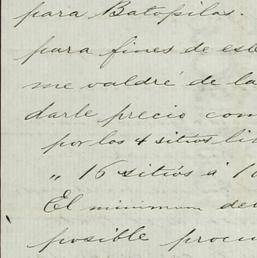 para Batopilas.
para fines de este
me valdré de la
darle precio com
por los 4 sitios li
" 16 sitios á 10
El minimum de
posible procu